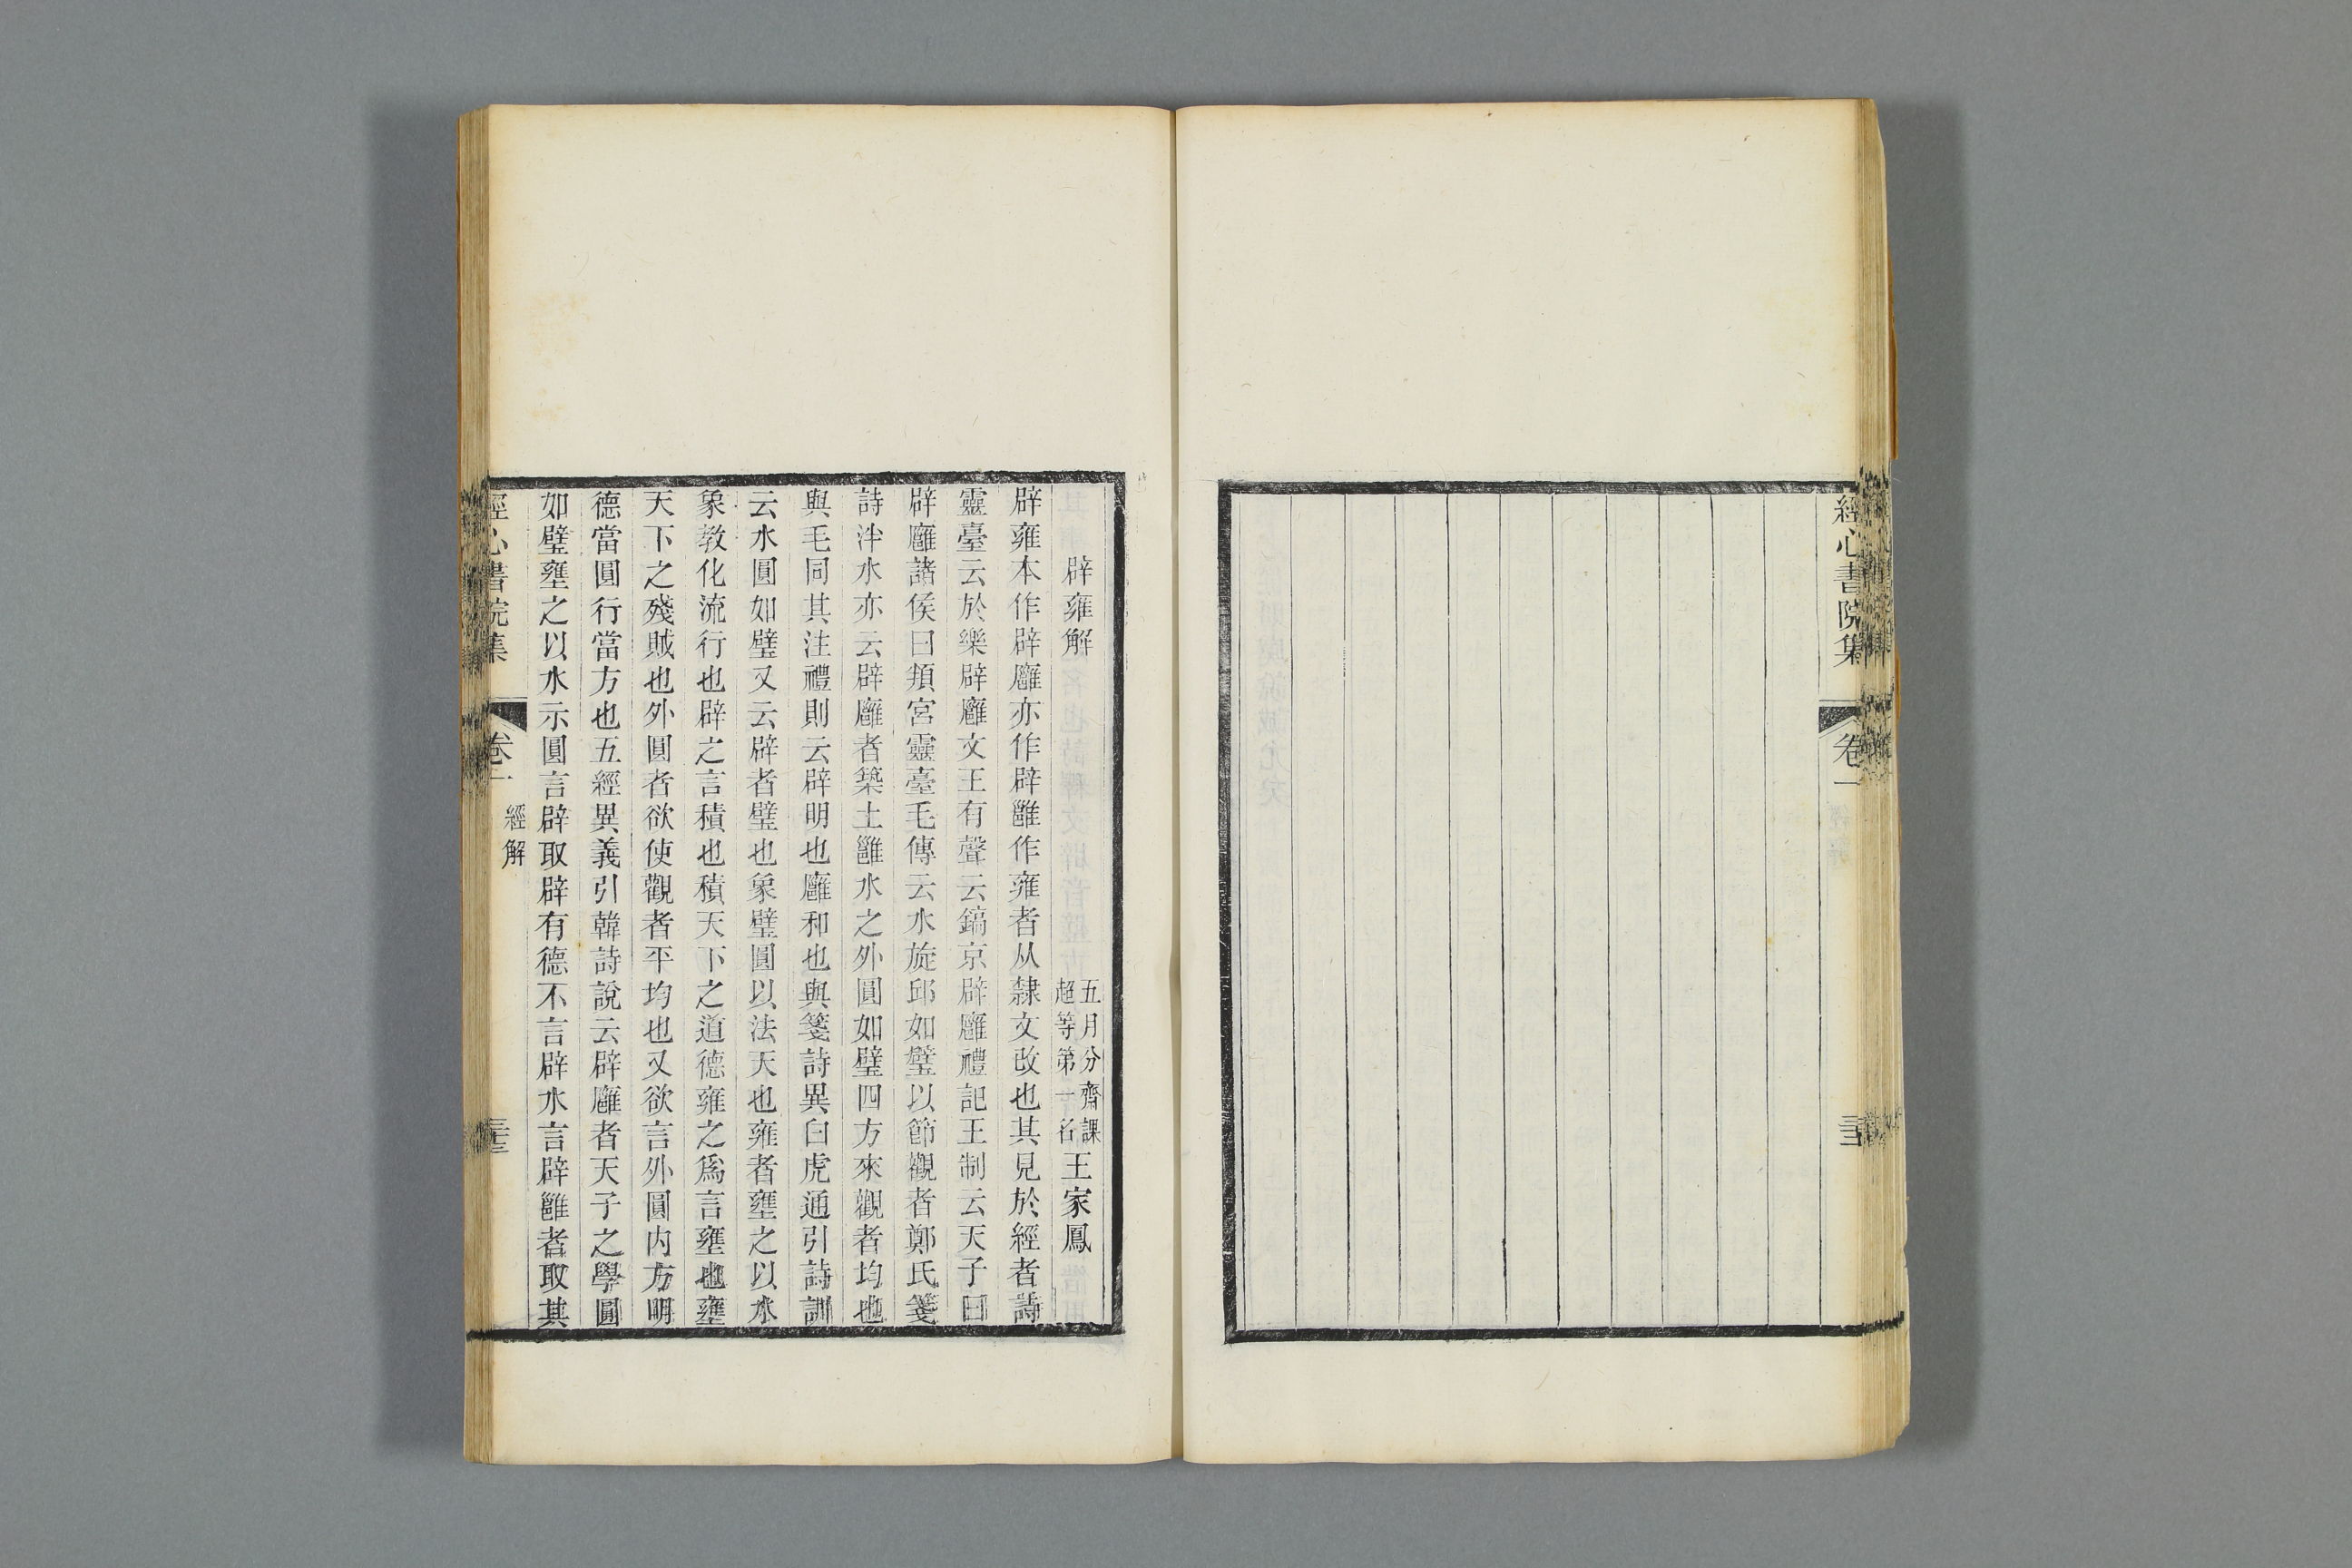 經心書院集
卷一
辟雍解
五月分齋課
超等第一名
王家鳳
辟雍本作辟廱亦作辟雝作雍者从隸文改也其見於經者詩
靈臺云於樂辟廱文王有聲云鎬京辟廱禮記王制云天子曰
辟廱諸侯曰頖宮靈臺毛傳云水旋邱如璧以節觀者鄭氏箋
詩泮水亦云辟廱者築土雝水之外圓如璧四方來觀者均也
與毛同其注禮則云辟明也廱和也與箋詩異白虎通引詩訓
云水圓如璧又云辟者璧也象璧圓以法天也雍者壅之以水
象教化流行也辟之言積也積天下之道德雍之爲言壅也壅
天下之殘賊也外圓者欲使觀者平均也又欲言外圓内方明
德當圓行當方也五經異義引韓詩說云辟廱者天子之學圓
如璧壅之以水示圓言辟取辟有德不言辟水言辟雝者取其
經心書院集
卷一
經解